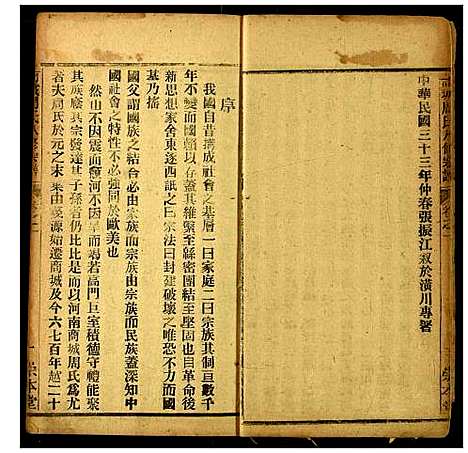 中華民國三十三年仲春張振江敘於潢川專署
序
我國自昔搆成社會之基層一曰家庭二曰宗族其制亘數千
年不變而國脉民命實利賴之以綿縣繁衍至於壓因也自革命
新思想家舍東逐西詆之曰宗法曰封建破壞之惟恐不力而國
基乃搖
國父謂國族之結合必由家族而宗族由宗族而民族蓋深知中
國社會之特性不必強同於歐美也
然山不因震而 河不因旱而竭若高門巨室積德守禮能聚
其族 發達其子孫者仍比比是而以河南商城周氏為尤
著夫周氏於元之末葉由婺源始遷商城及今六七百年越二十
一
榮本堂